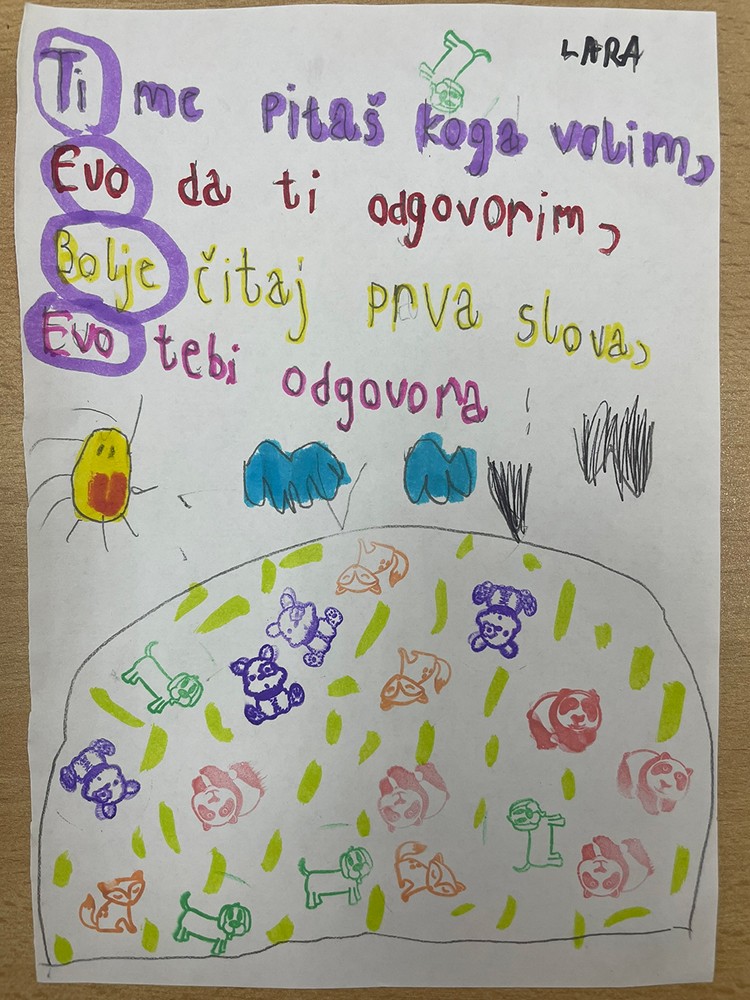 LARA
Ti me pitaš koga volim,
Evo da ti odgovorim,
Bolje čitaj prva slova,
Evo tebi odgovora